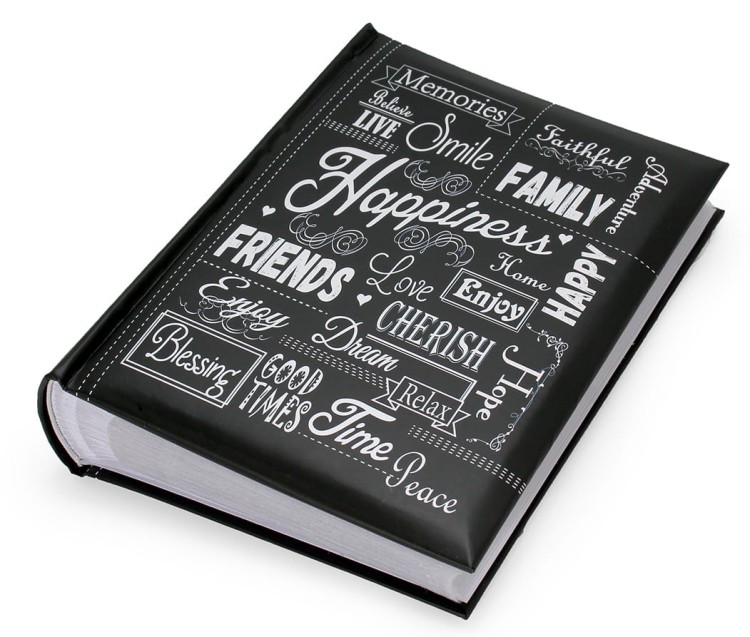 Memories
Believe
LIVE
Smile
Faithful
Adventure
FAMILY
Happiness
HAPPY
FRIENDS
Love
Home
Enjoy
Enjoy
CHERISH
Dream
Hope
Blessing
GOOD
TIMES
Relax
Time
Peace